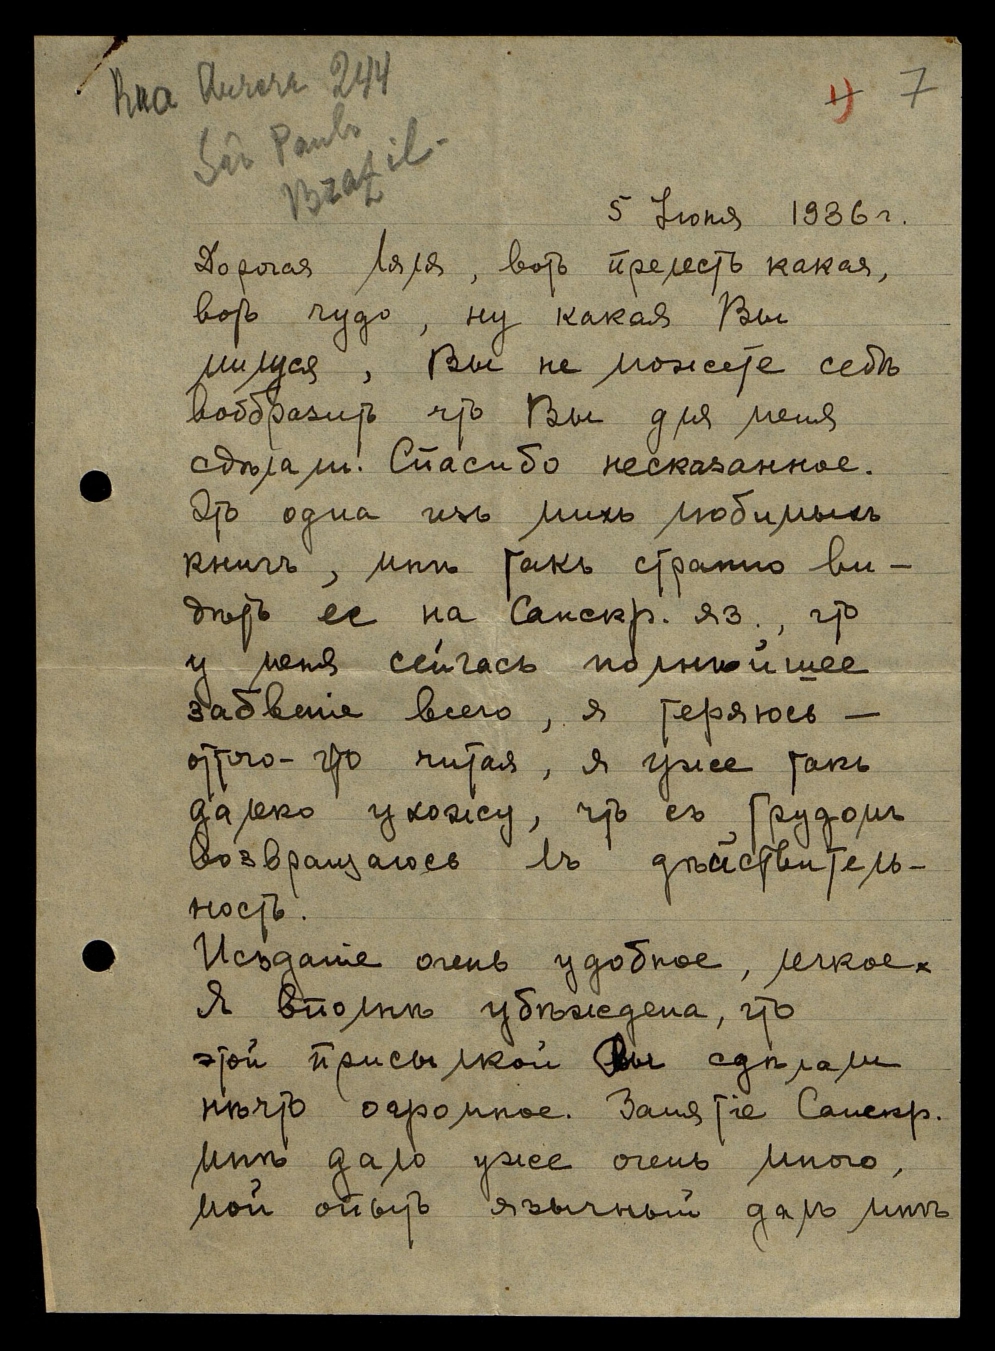 Rua Aurora 244
São Paulo
Brazil.
1) 7
5 Июня 1936 г.
Дорогая Ляля, вотъ прелесть какая,
вотъ чудо, ну какая Вы
милуся, Вы не можете себѣ
вообразить что Вы для меня
сдѣлали. Спасибо несказанное.
Это одна изъ моихъ любимыхъ
книгъ, мнѣ такъ странно ви-
дѣть ее на Санскр. яз., что
у меня сейчасъ полнѣйшее
забвеніе всего, я теряюсь —
отчего-то читая, я уже такъ
далеко ухожу, что съ трудомъ
возвращаюсь въ дѣйствитель-
ность.
Исъданіе очень удобное, легкое.
Я вполнѣ убѣждена, что
этой присылкой Вы сдѣлали
нѣчто огромное. Занятіе Санскр.
мнѣ дало уже очень много,
мой опытъ язычный далъ мнѣ